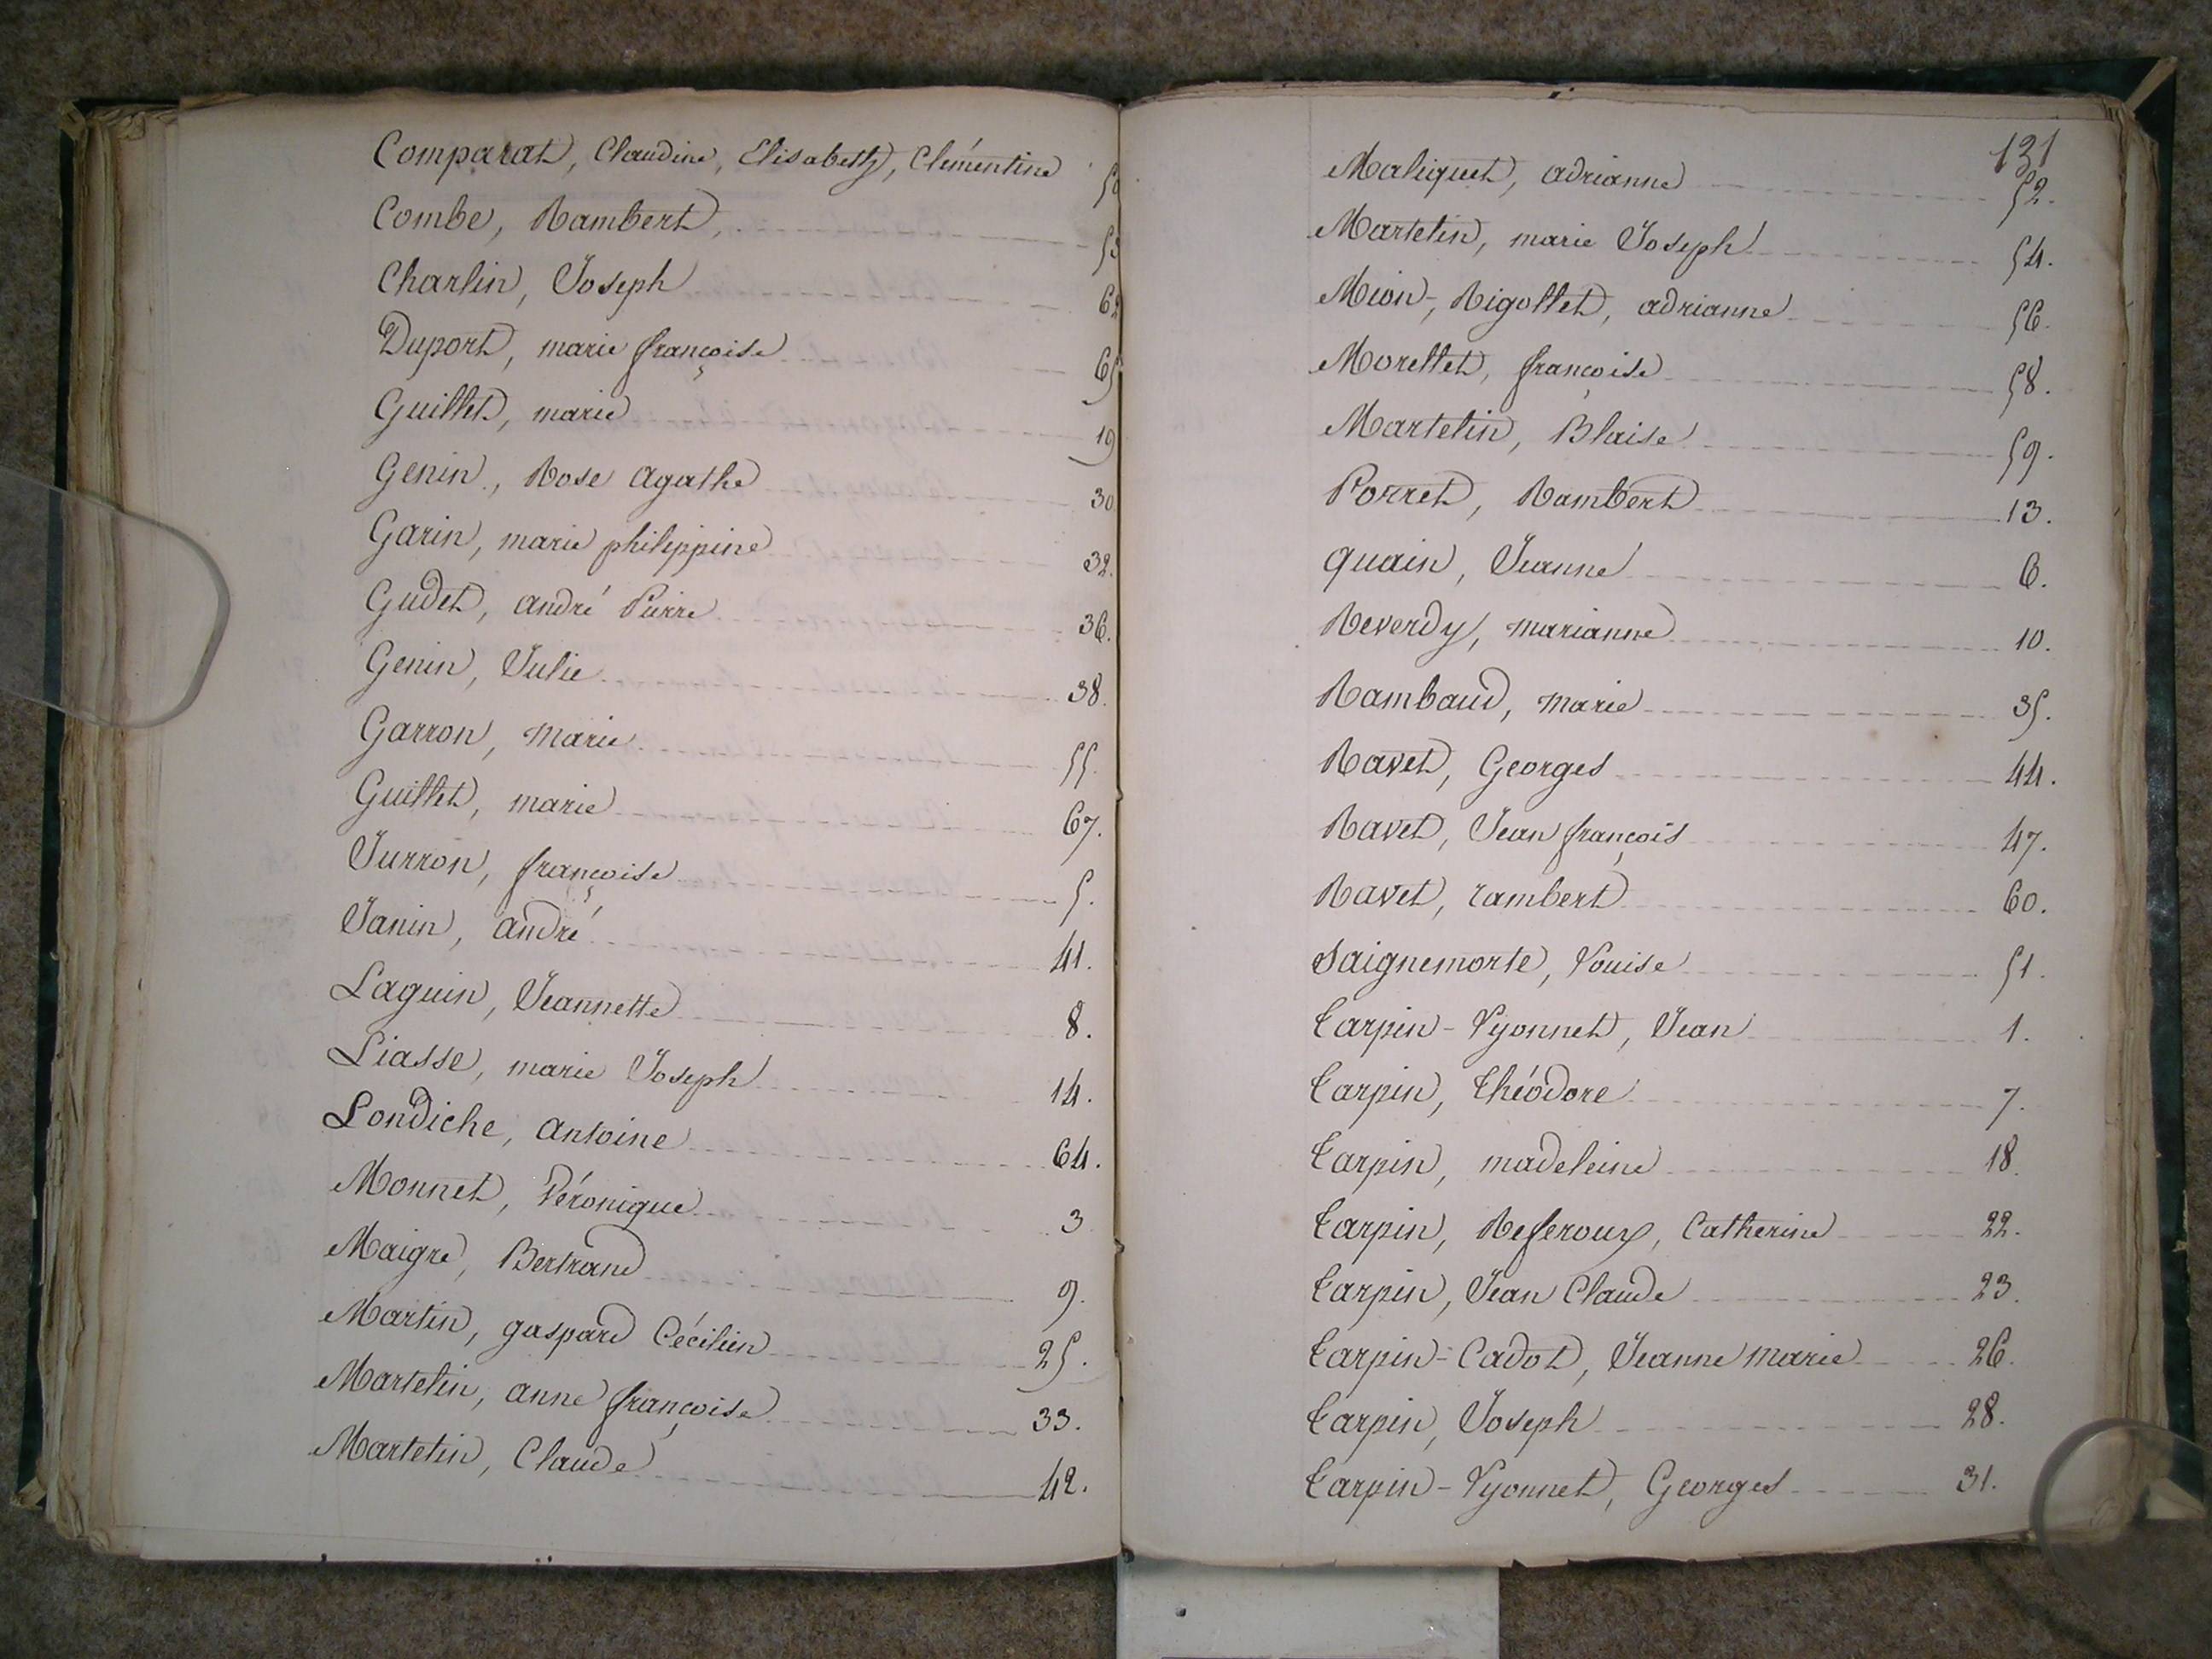 Comparat, Claudine, Elisabeth, Clémentine
Combe, Rambert,
Charlin, Joseph 62
Duport, marie françoise 65
Guillet, marie 19
Genin, Rose Agathe 30
Garin, marie philippine 32.
Gudet, andré Pierre 36.
Genin, Julie 38.
Garron, Marie 55.
Guillet, marie 67.
Jurron, françoise 5.
Janin, André 41.
Laguin, Jeannette 8.
Liasse, marie Joseph 14.
Londiche, Antoine 64.
Monnet, Véronique 3
Maigre, Bertrand 9.
Martin, gaspard Cécilien 25.
Martelin, anne françoise 33.
Martelin, Claude 42.
131
Maliquet, adrianne 52.
Martelin, marie Joseph 54.
Mion-Rigollet, adrianne 56.
Morellet, françoise 58.
Martelin, Blaise 59.
Porret, Rambert 13.
Quain, Jeanne 6.
Reverdy, marianne 10.
Rambaud, Marie 35.
Ravet, Georges 44.
Ravet, Jean françois 47.
Ravet, rambert 60.
Saignemorte, Louise 51.
Tarpin-Vyonnet, Jean 1.
Tarpin, Théodore 7.
Tarpin, madeleine 18.
Tarpin, Reseroux, Catherine 22.
Tarpin, Jean Claude 23.
Tarpin-Cadot, Jeanne Marie 26.
Tarpin, Joseph 28.
Tarpin-Vyonnet, Georges 31.